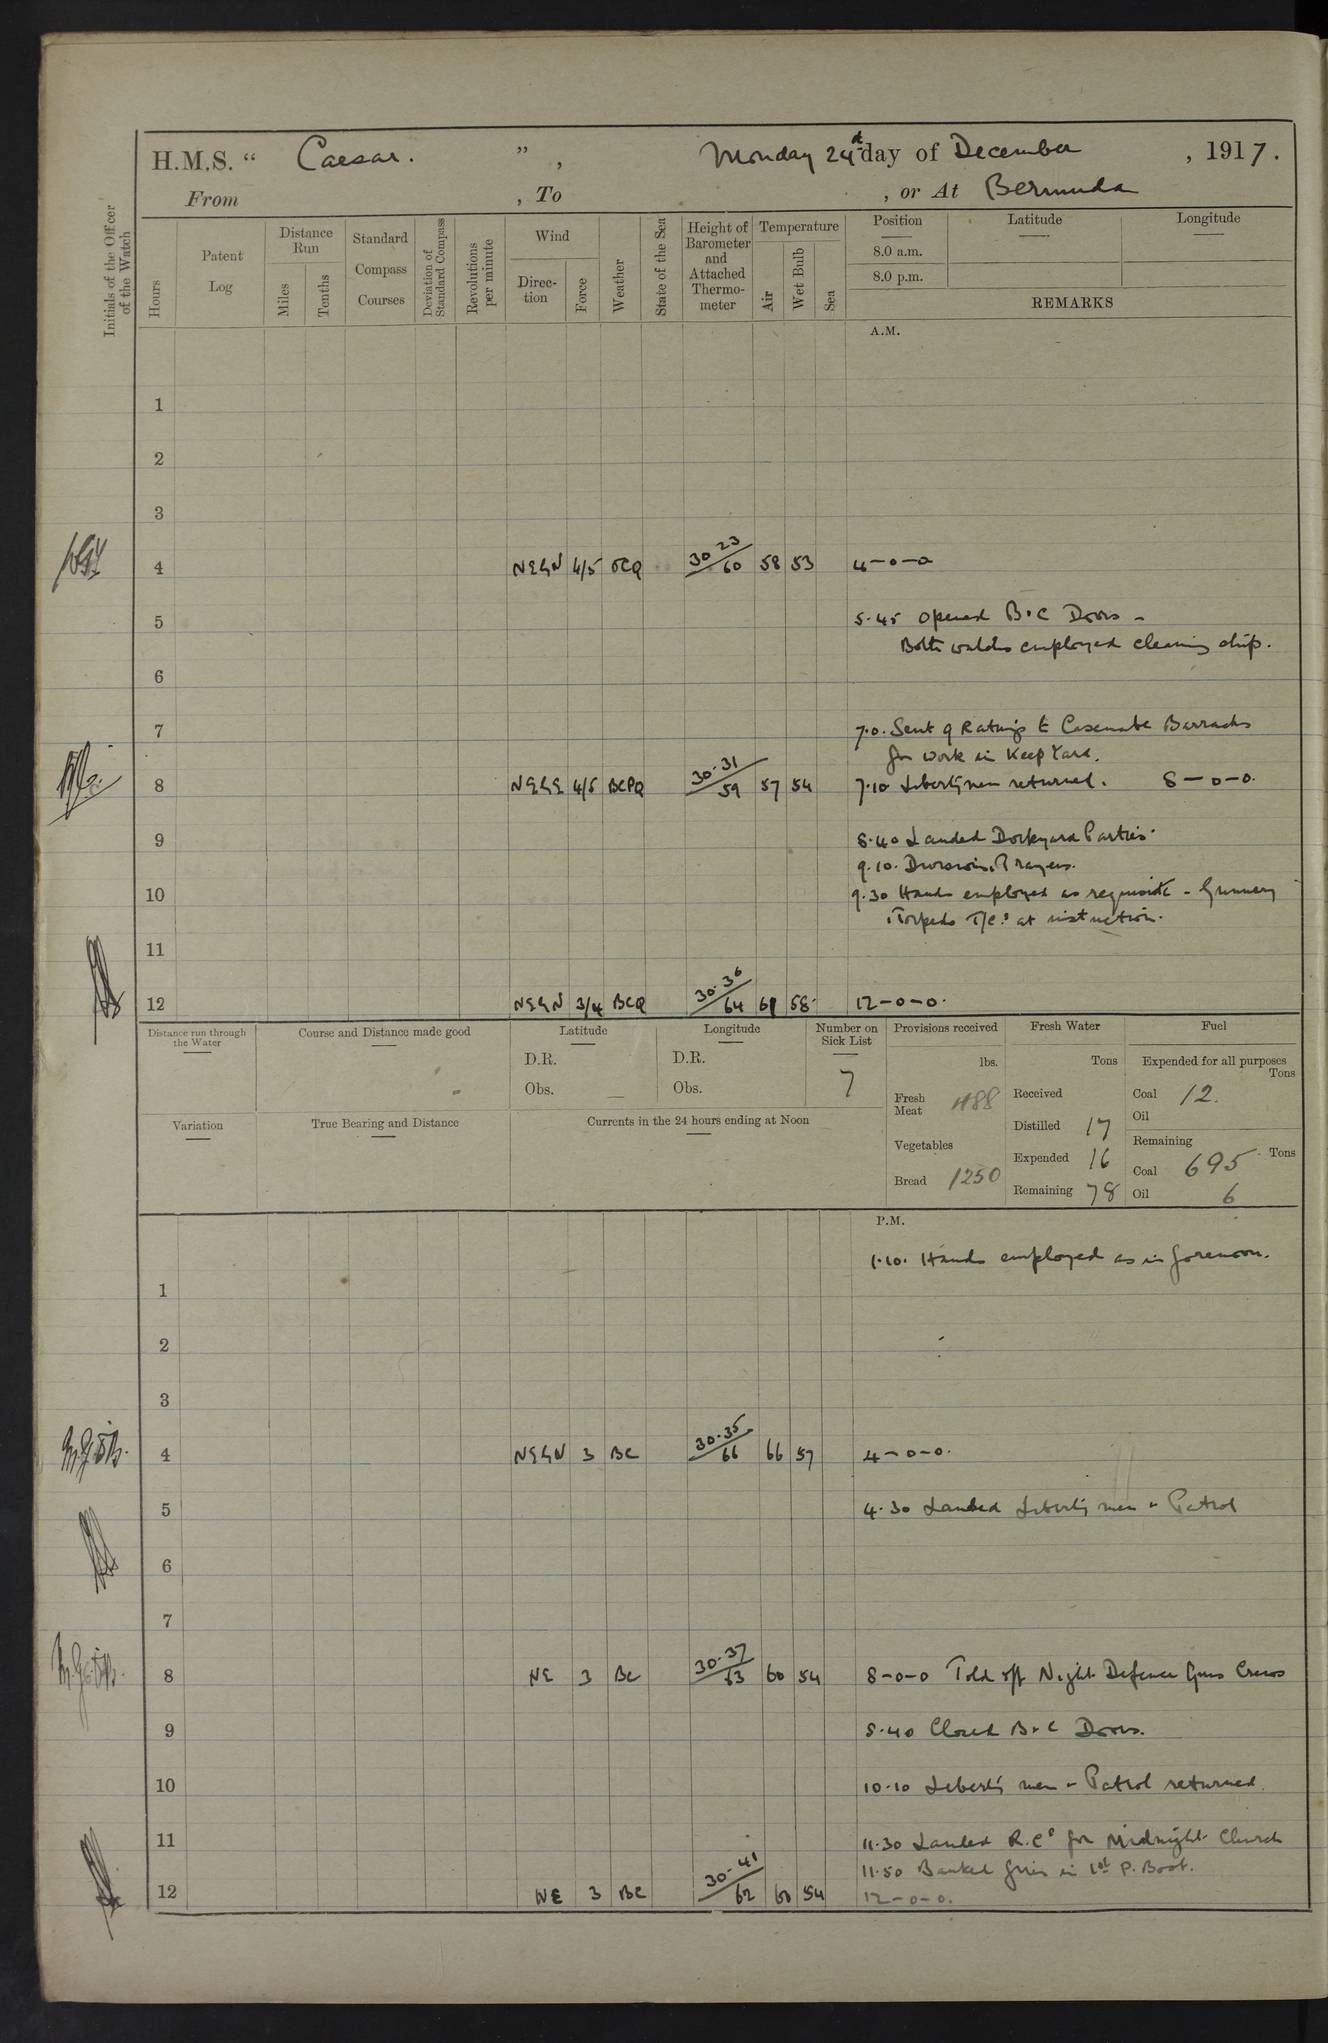 H.M.S. “ Caesar. ” , Monday 24th day of December , 1917.
From , To , or At Bermuda
Initials of the Officer of the Watch
Hours
Patent Log
Distance Run
Miles
Tenths
Standard Compass Courses
Deviation of Standard Compass
Revolutions per minute
Wind
Direction
Force
Weather
State of the Sea
Height of Barometer and Attached Thermometer
Temperature
Air
Wet Bulb
Sea
Position Latitude Longitude
8.0 a.m.
8.0 p.m.
REMARKS
A.M.
1
2
3
4 NE½N 4/5 OCQ 30 23/60 58 53 4-0-0
5 5.45 Opened B.C Doors -
Both watches employed cleaning ship.
6
7 7.0. Sent 9 Ratings to Casemate Barracks
for work in Keep Yard.
8 NE½E 4/5 BCPQ 30.31/59 57 54 7.10 Liberty men returned. 8-0-0.
9 8.40 Landed Dockyard Parties.
9.10. Divisions, Prayers.
10 9.30 Hands employed as requisite - Gunnery
Torpedo T/C's at instruction.
11
12 NE½N 3/4 BCQ 30.36/64 61 58 12-0-0.
Distance run through the Water
Course and Distance made good
Latitude
D.R.
Obs.
Longitude
D.R.
Obs.
Number on Sick List
7
Provisions received
lbs.
Fresh Meat 488
Vegetables
Bread 1250
Fresh Water
Tons
Received
Distilled 17
Expended 16
Remaining 78
Fuel
Expended for all purposes
Tons
Coal 12.
Oil
Remaining
Tons
Coal 695
Oil 6
Variation
True Bearing and Distance
Currents in the 24 hours ending at Noon
P.M.
1.10. Hands employed as in forenoon.
1
2
3
4 NE½N 3 BC 30.35/66 66 57 4-0-0.
5 4.30 Landed Liberty men & Patrol
6
7
8 NE 3 BC 30.37/63 60 54 8-0-0 Told off Night Defence Guns Crews
9 8.40 Closed B.C Doors.
10 10.10 Liberty men & Patrol returned.
11 11.30 Landed R.C's for Midnight Church
11.50 Banked fires in 1st P. Boat.
12 NE 3 BC 30.41/62 60 54 12-0-0.